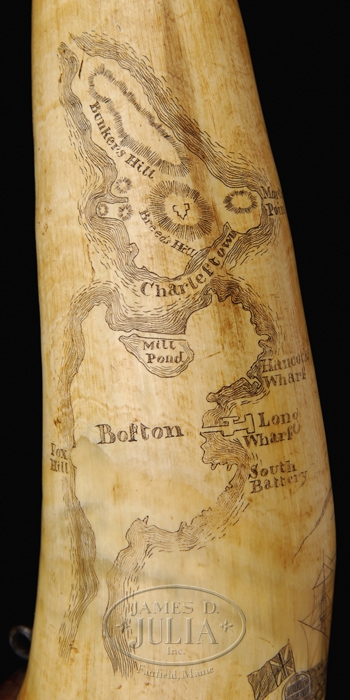 Bunkers Hill
Breeds Hill
Charlestown
Point
Mill
Pond
Hancock
Wharf
Boſton
Long
Wharf
Fox
Hill
South
Battery
JAMES D.
JULIA
Inc.
Fairfield, Maine